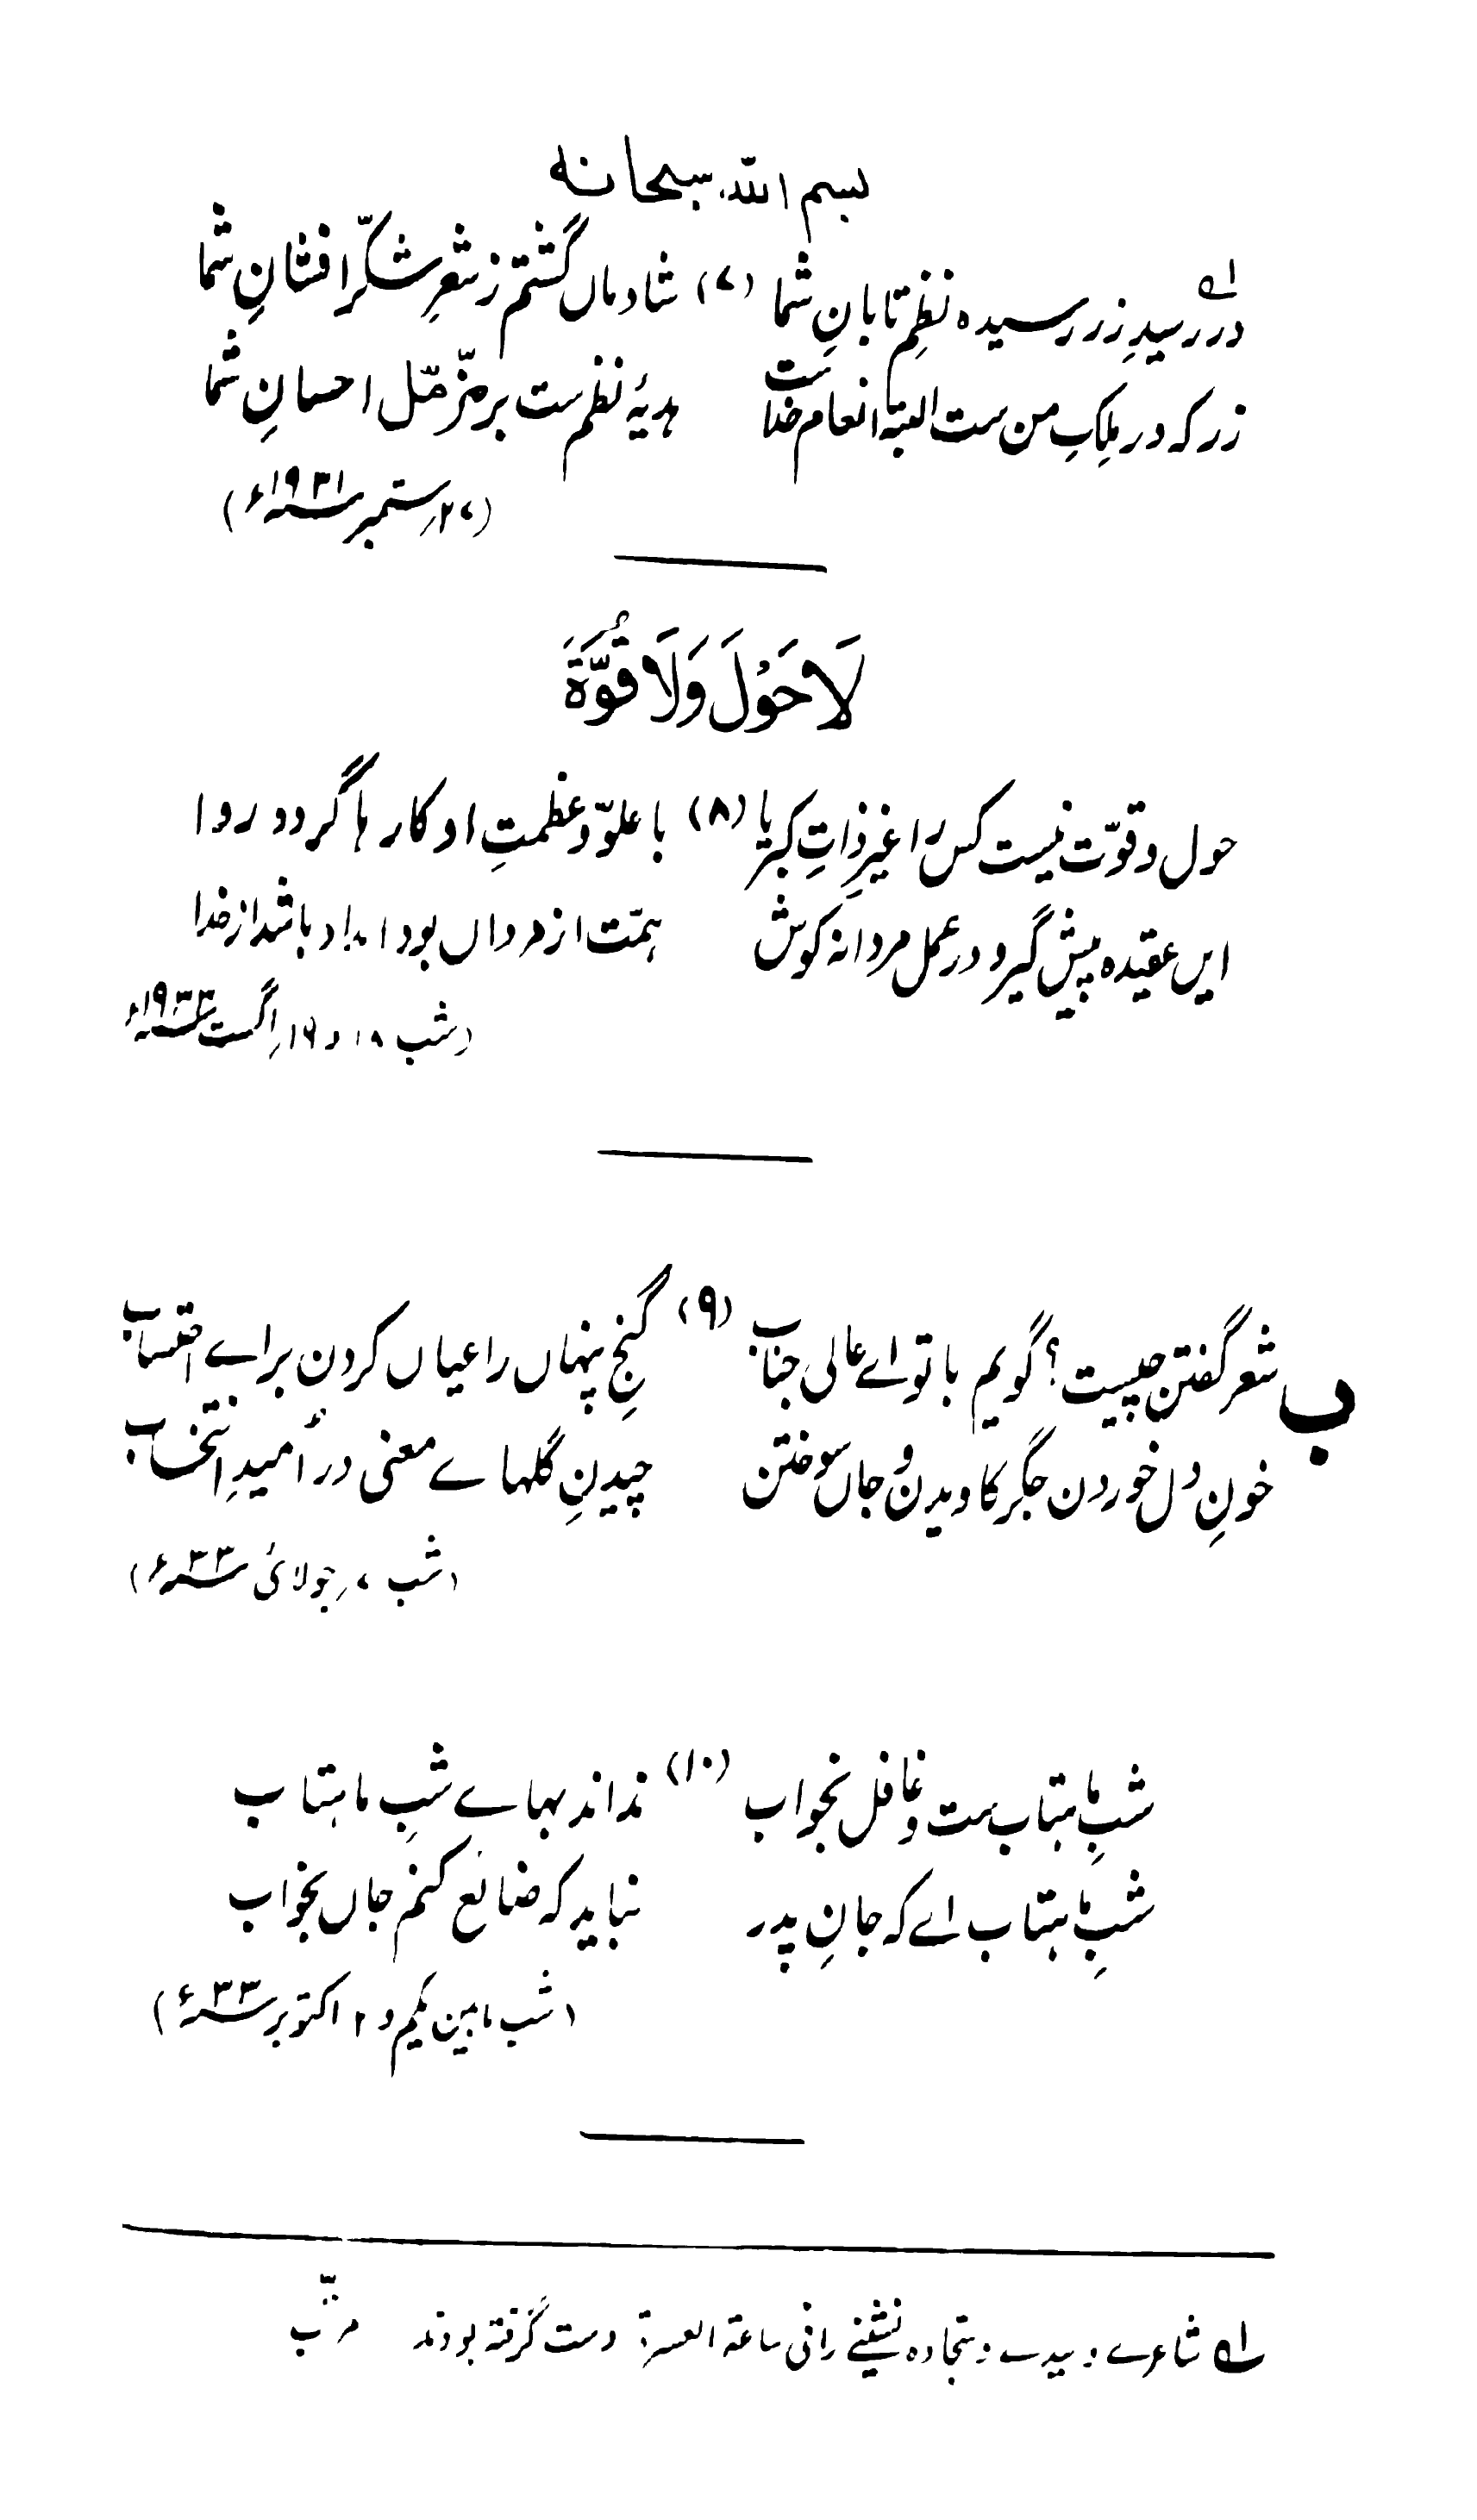 بسم اللہ سبحانہ
در رسیدِ زر رسیدہ نظمِ تابانِ شما (۷) شادماں گشتم ز شعرِ شکّر افشانِ شما
زر کہ در ملکِ من ست البتہ انعامِ خداست ہدیۂ نظم ست برحق حاصل احسانِ شما
(۲۷ ستمبر ۱۹۳۱ء)
لَاحَوْلَ وَلَا قُوَّةَ
حول و قوّت نیست کس را غیرِ ذاتِ کبریا (۸) با علوّ و عظمتِ او کارہا گردد روا
ایں عقیدہ پیش گیر و در عمل مردانہ کوش ہمّت از مرداں بود امداد باشد از خدا
(شب ۱۸ و ۱۷ اگست ۱۹۳۳ء
شعر گفتن چیست؟ گویم با تو اے عالی جناب (۹) گنجِ پنہاں را عیاں کردن براے
خونِ دل خوردن جگر کاویدن و جاں سوختن چیدنِ گلہاے معنی در امیدِ انتخاب
(شب ۷ جولائی ۳۳ء)
شبِ ماہتاب ست و غافل بخواب (۱۰) نداند بہاے شبِ ماہتاب
شبِ ماہتاب اے کہ جانِ پدر نباید کہ ضائع کنم جاں بخواب
(شب مابین یکم و ۲ اکتوبر ۳۳ء)
لہ شاعرے بہ سجادہ نشینے دست گرفتہ بودند مرتّب